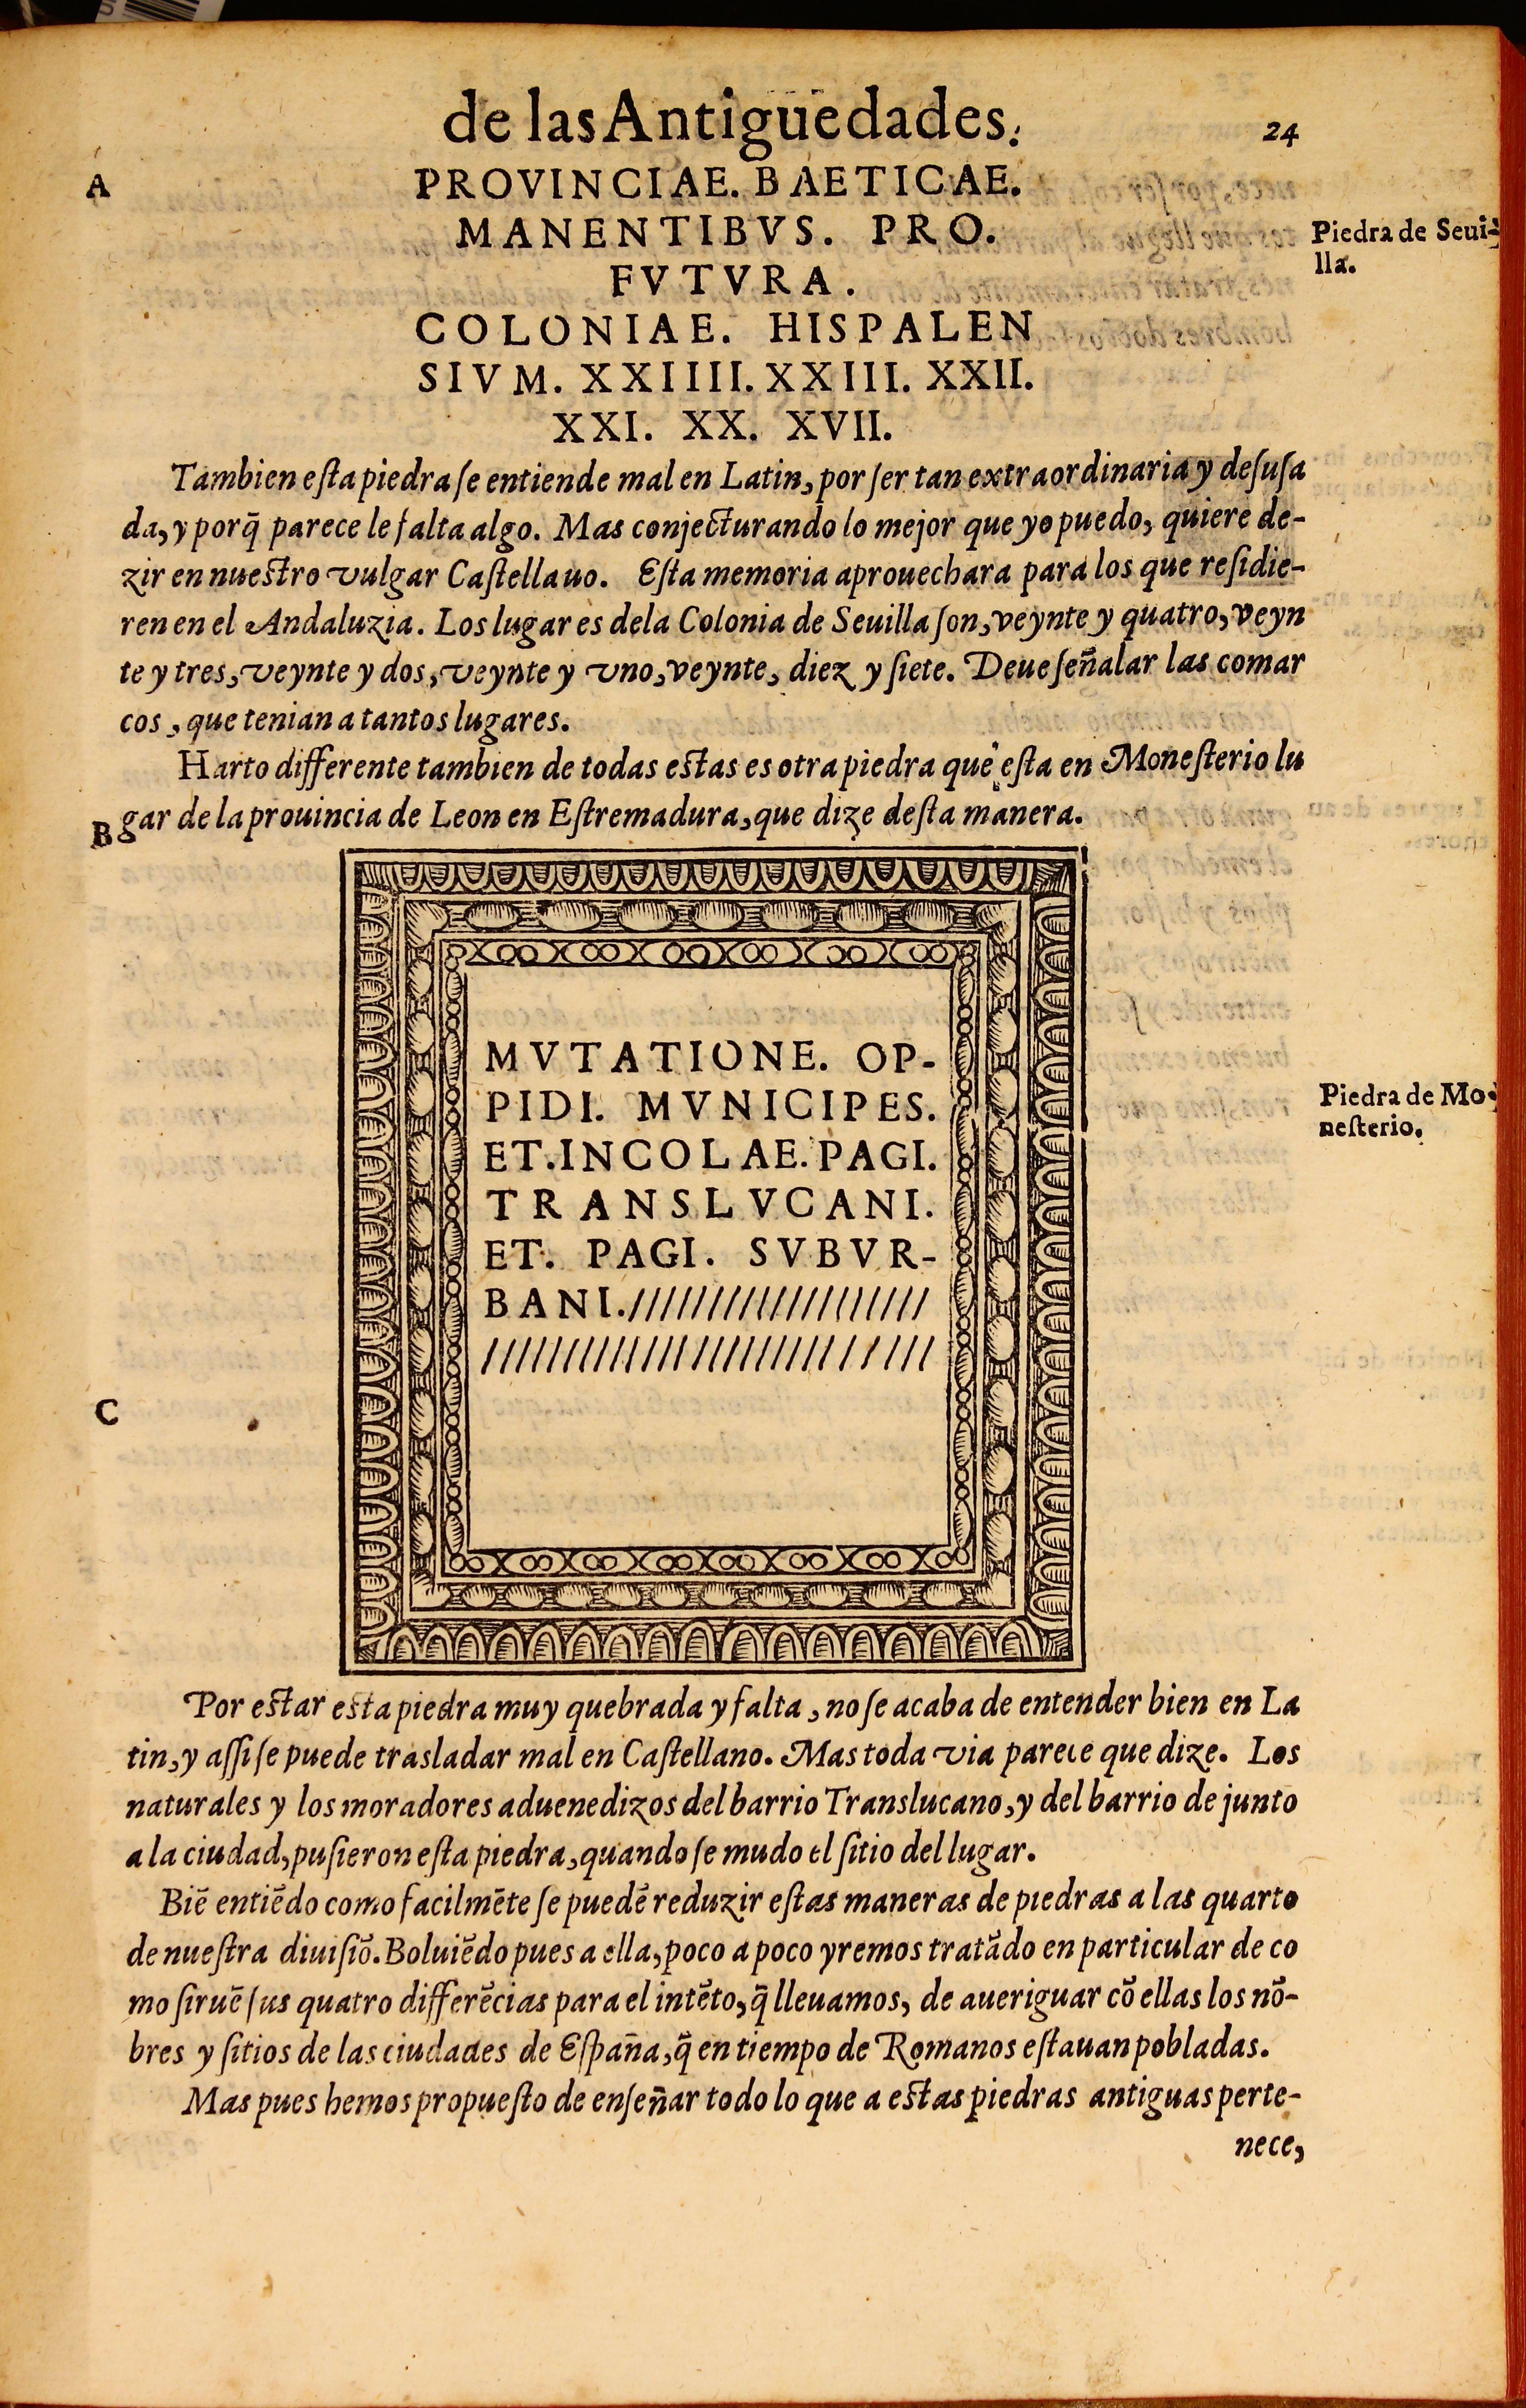 de las Antiguedades. 24
A
PROVINCIAE. BAETICAE.
MANENTIBVS. PRO.
Piedra de Seui-
lla.
FVTVRA.
COLONIAE. HISPALEN
SIVM. XXIIII. XXIII. XXII.
XXI. XX. XVII.
Tambien eſta piedra ſe entiende mal en Latin, por ſer tan extraordinaria y deſuſa
da, y porq̃ parece le falta algo. Mas conjecturando lo mejor que yo puedo, quiere de-
zir en nueſtro vulgar Caſtellauo. Eſta memoria aprouechara para los que reſidie-
ren en el Andaluzia. Los lugares dela Colonia de Seuilla ſon, veynte y quatro, veyn
te y tres, veynte y dos, veynte y vno, veynte, diez y ſiete. Deue ſeñalar las comar
cos, que tenian a tantos lugares.
Harto differente tambien de todas eſtas es otra piedra que eſta en Moneſterio lu
B
gar de la prouincia de Leon en Eſtremadura, que dize deſta manera.
MVTATIONE. OP-
PIDI. MVNICIPES.
Piedra de Mo-
neſterio.
ET. INCOLAE. PAGI.
TRANSLVCANI.
ET. PAGI. SVBVR-
BANI.///////////////////
////////////////////////////
C
Por eſtar eſta piedra muy quebrada y falta, no ſe acaba de entender bien en La
tin, y aſſi ſe puede trasladar mal en Caſtellano. Mas toda via parece que dize. Los
naturales y los moradores aduenedizos del barrio Translucano, y del barrio de junto
a la ciudad, puſieron eſta piedra, quando ſe mudo el ſitio del lugar.
Biẽ entiẽdo como facilmẽte ſe puedẽ reduzir eſtas maneras de piedras a las quarto
de nueſtra diuiſiõ. Boluiẽdo pues a ella, poco a poco yremos tratãdo en particular de co
mo ſiruẽ ſus quatro differẽcias para el intẽto, q̃ lleuamos, de aueriguar cõ ellas los nõ-
bres y ſitios de las ciudades de Eſpaña, q̃ en tiempo de Romanos eſtauan pobladas.
Mas pues hemos propueſto de enſeñar todo lo que a eſtas piedras antiguas perte-
nece,